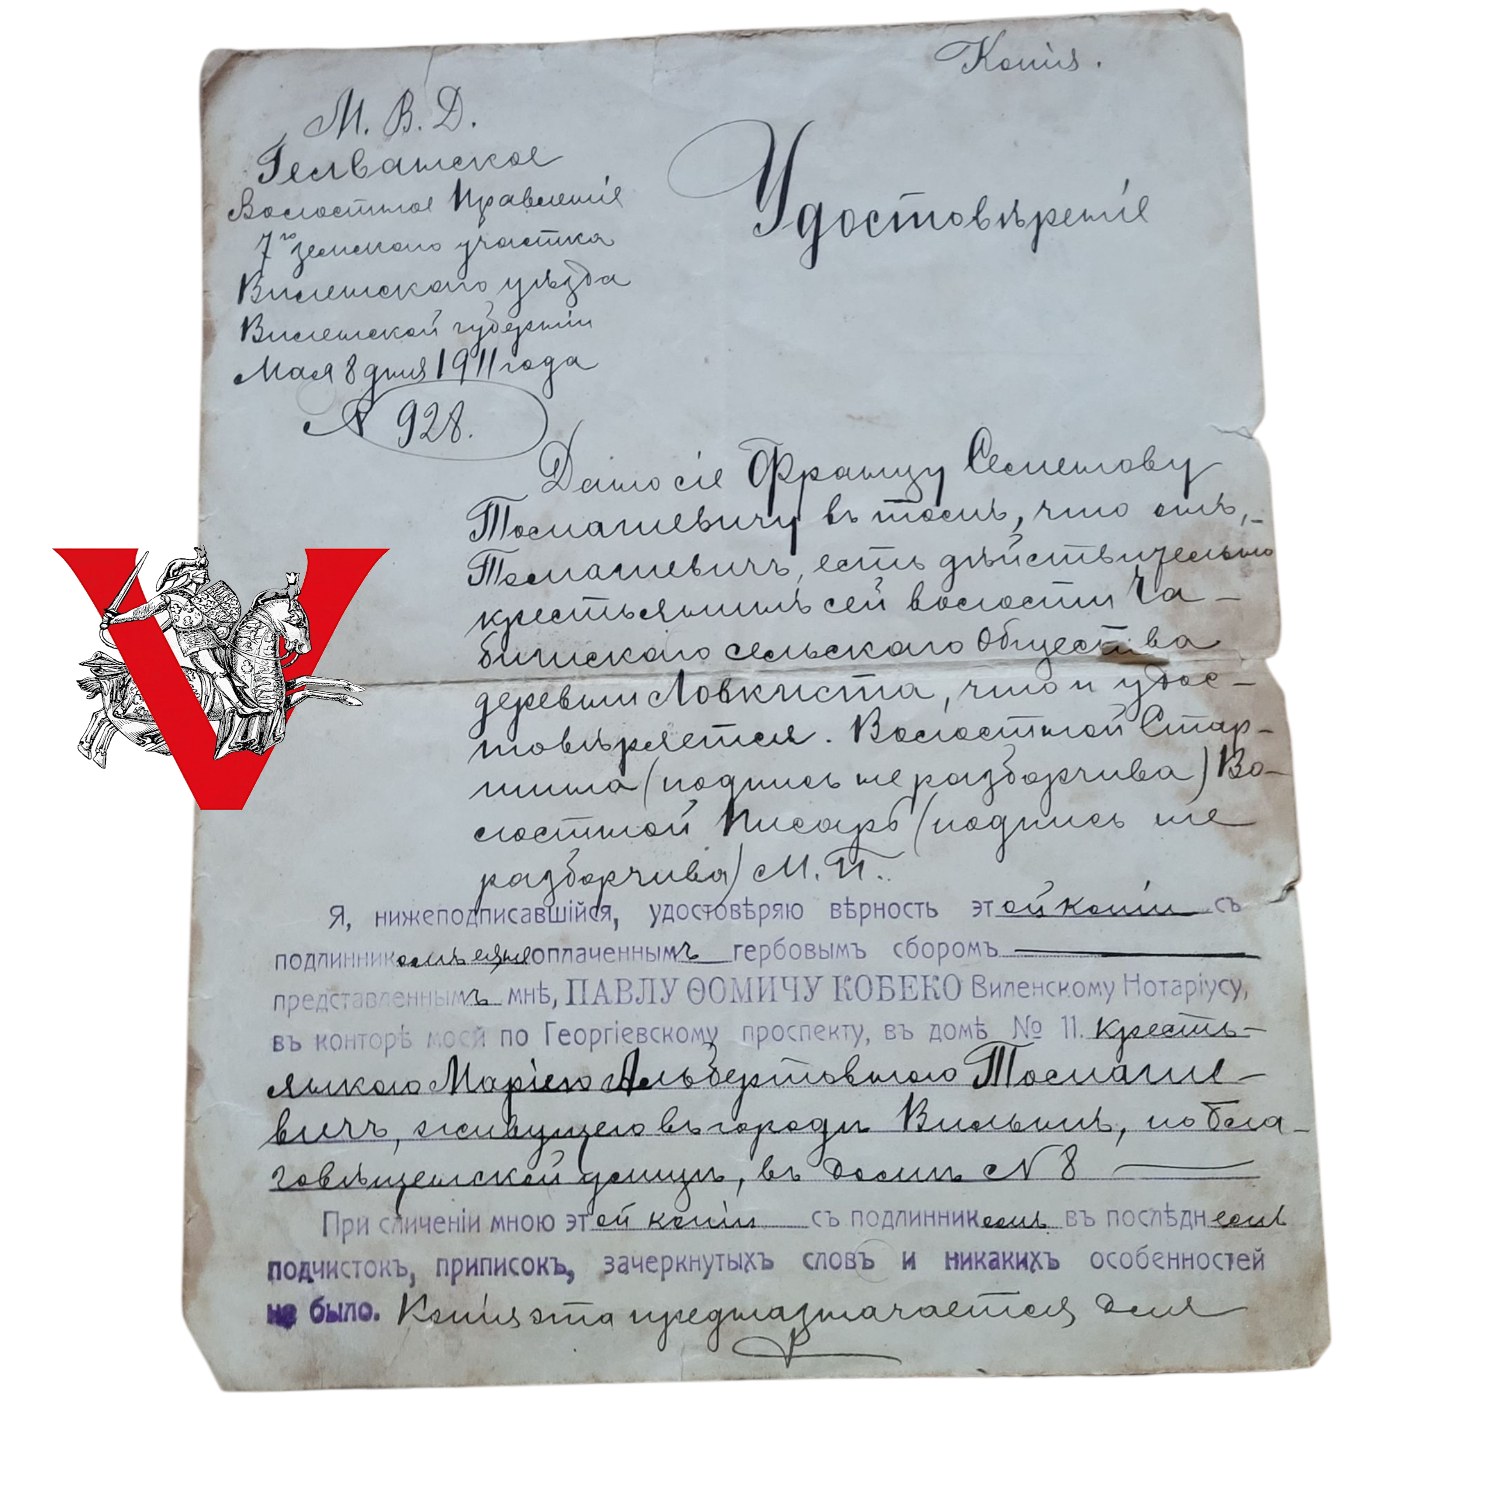 Копія.
М. В. Д.
Гелванское
Волостное Правленіе
7го земского участка
Виленскаго уѣзда
Виленской губерніи
Мая 8 дня 1911 года
№ 928.
Удостовѣреніе
Дано сіе Францу Семенову
Томашевичу въ томъ, что онъ,
Томашевичъ, есть дѣйствительно
крестьянинъ сей волости Ча-
бишскаго сельскаго Общества
деревни Ловкиста, что и удос-
товѣряется. Волостной Стар-
шина (подпись не разборчива) Во-
лостной Писарь (подпись не
разборчива) М. П.
Я, нижеподписавшійся, удостовѣряю вѣрность этой копіи съ
подлинникомъ ея, неоплаченнымъ гербовымъ сборомъ
представленнымъ мнѣ, ПАВЛУ ѲОМИЧУ КОБЕКО Виленскому Нотаріусу,
въ конторѣ моей по Георгіевскому проспекту, въ домѣ № 11. кресть-
янкою Маріею Альбертовною Томаше-
вичъ, живущею въ городѣ Вильнѣ, по Бла-
говѣщенской улицѣ, въ домѣ № 8
При сличеніи мною этой копіи съ подлинникомъ въ послѣднемъ
подчистокъ, приписокъ, зачеркнутыхъ словъ и никакихъ особенностей
не было. Копія эта предназначается для
V